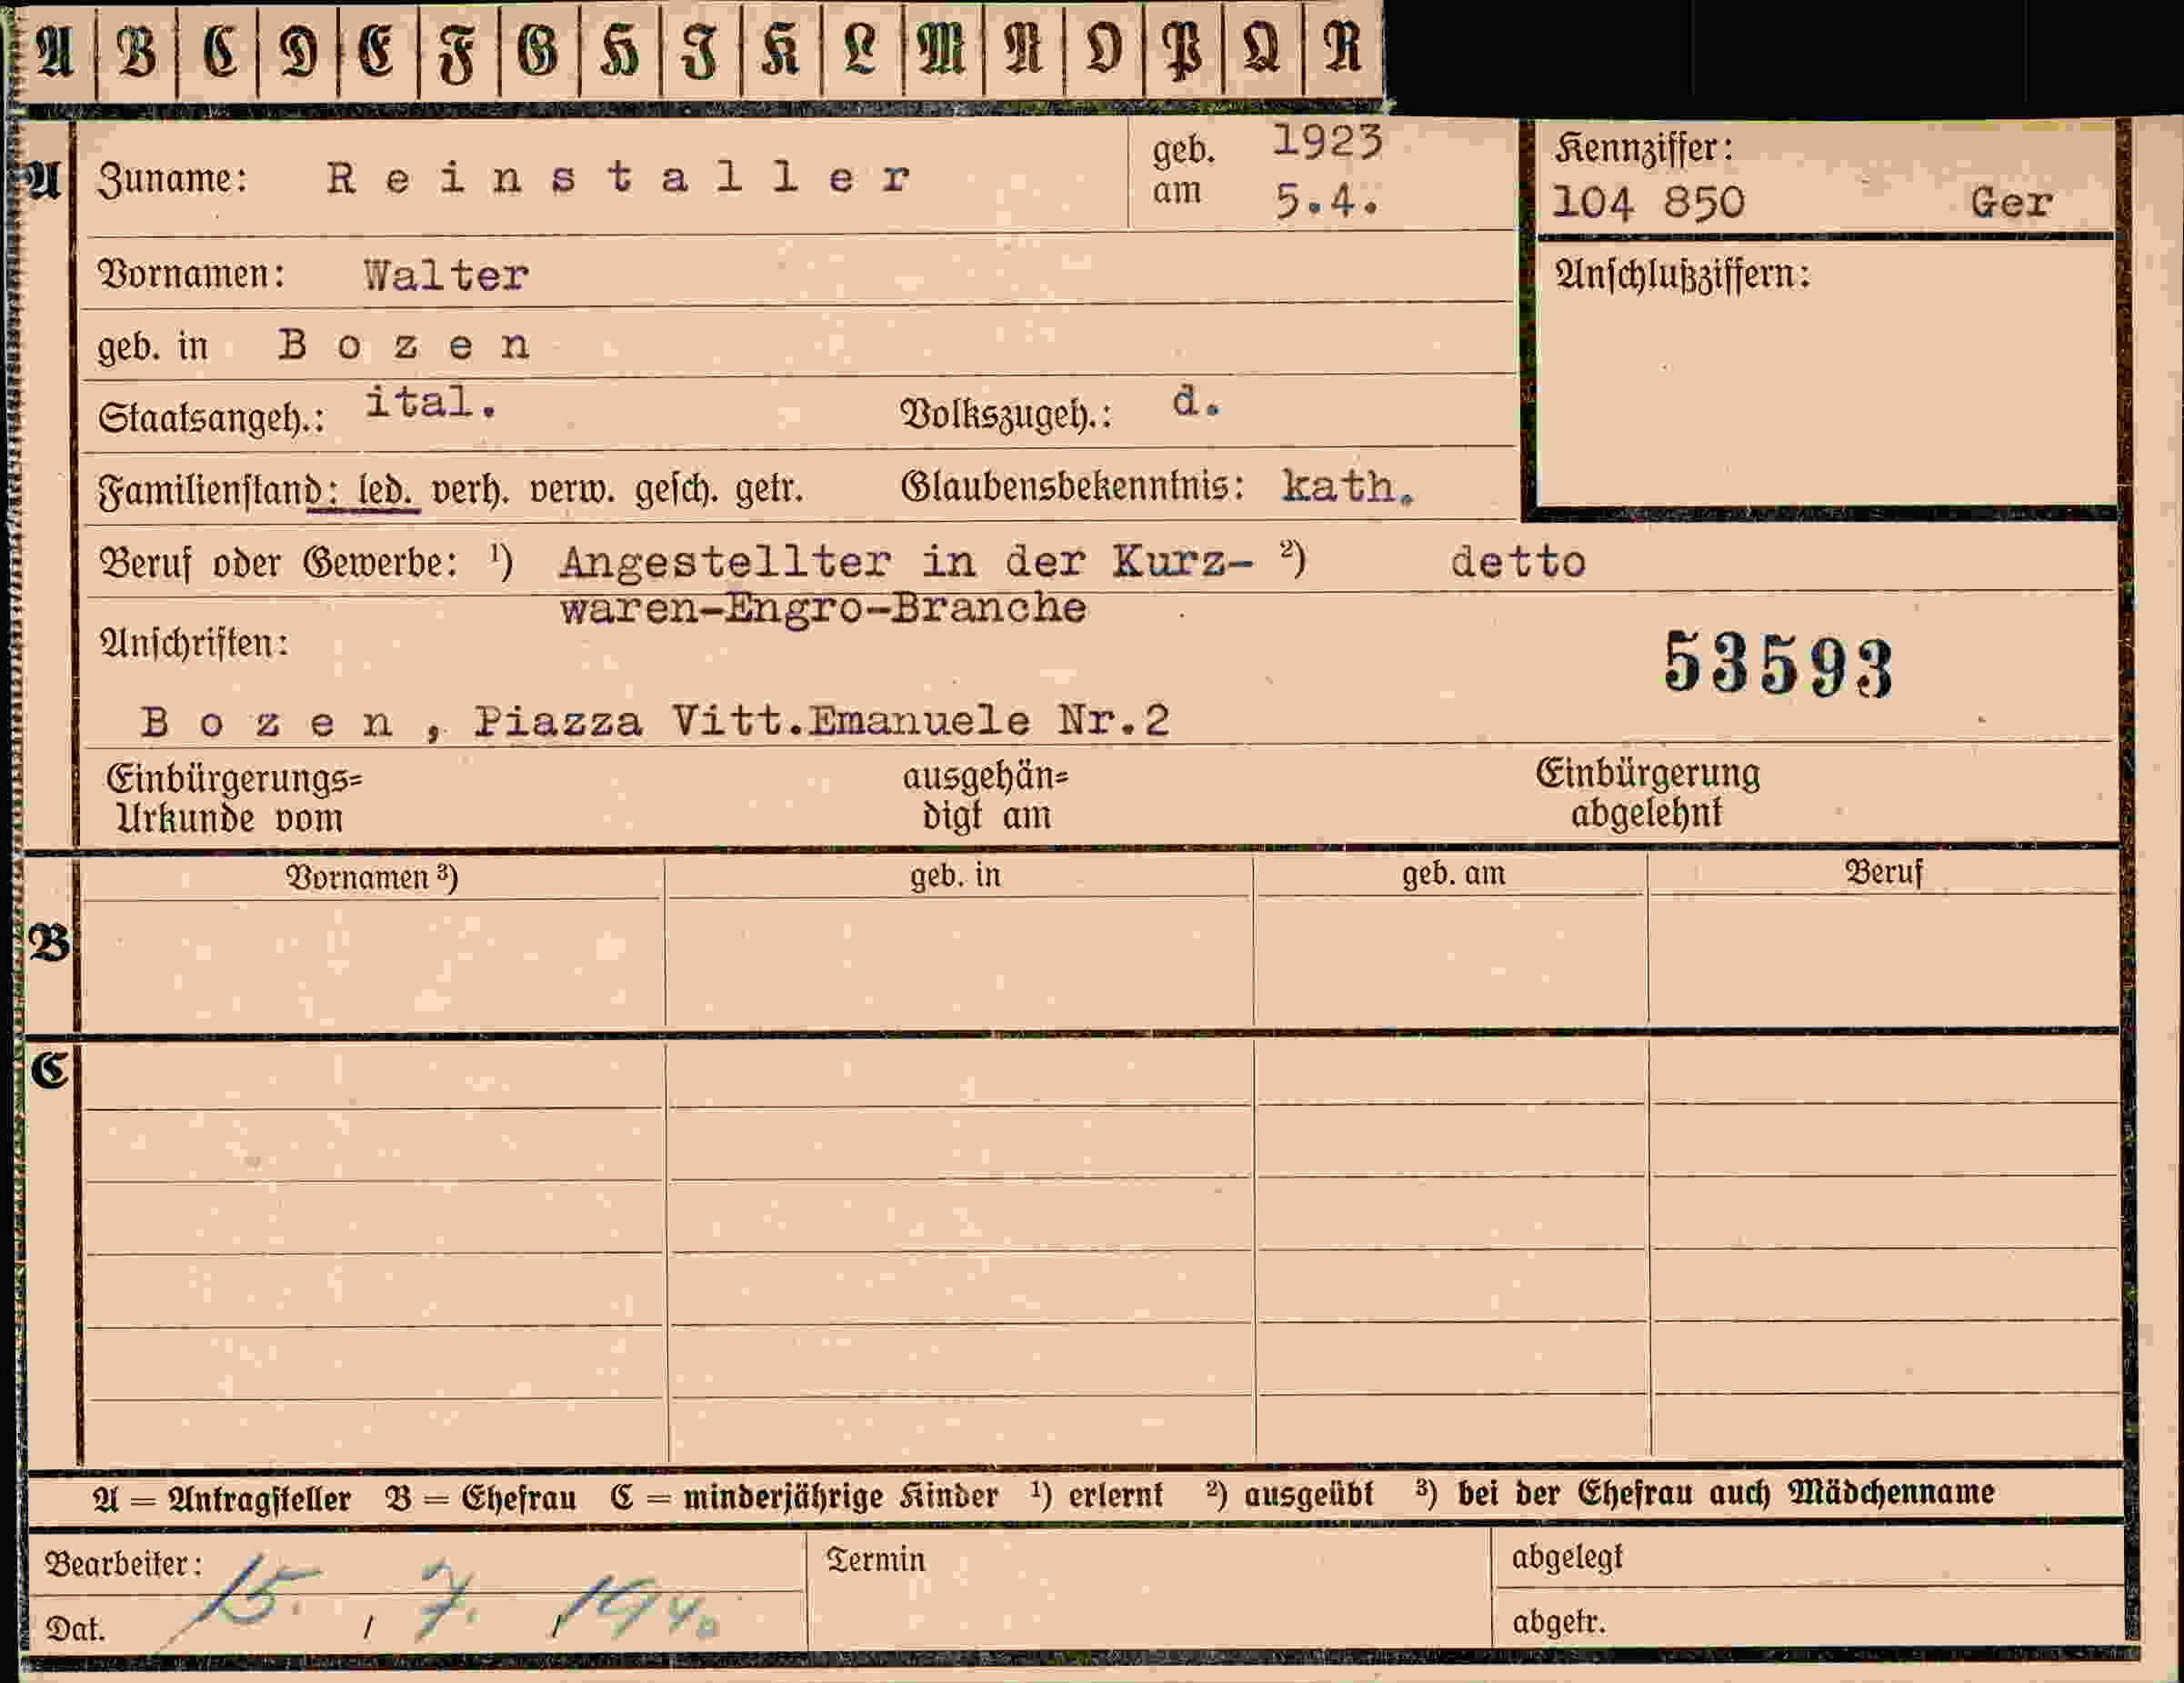 A B C D E F G H I K L M N O P Q R
A Zuname: Reinstaller geb. am 1923 5.4.
Kennziffer:
104 850 Ger
Vornamen: Walter
Anschlußziffern:
geb. in Bozen
Staatsangeh.: ital. Volkszugeh.: d.
Familienstand: led. verh. verw. gesch. getr. Glaubensbekenntnis: kath.
Beruf oder Gewerbe: ¹) Angestellter in der Kurz- ²) detto
waren-Engro-Branche
Anschriften:
53593
Bozen, Piazza Vitt.Emanuele Nr.2
Einbürgerungs= ausgehän= Einbürgerung
Urkunde vom digt am abgelehnt
Vornamen ³) geb. in geb. am Beruf
B
C
A = Antragsteller B = Ehefrau C = minderjährige Kinder ¹) erlernt ²) ausgeübt ³) bei der Ehefrau auch Mädchenname
Bearbeiter: Termin abgelegt
Dat. 15. / 7. / 1940 abgetr.